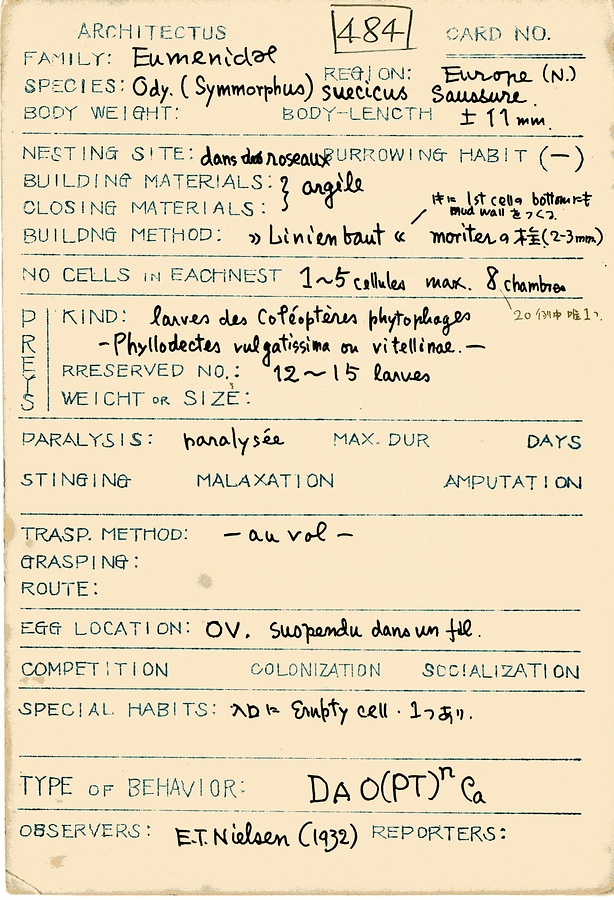 ARCHITECTUS 484 CARD NO.
FAMILY: Eumenidae
SPECIES: Ody. (Symmorphus) suecicus Saussure. REGION: Europe (N.)
BODY WEIGHT: BODY-LENGTH ±11 mm.
NESTING SITE: dans des roseaux BURROWING HABIT (—)
BUILDING MATERIALS: } argile
CLOSING MATERIALS:
1st cell の bottom にも
mud wall をつくる.
BUILDNG METHOD: » Linienbaut « mortier の栓(2-3mm)
NO CELLS IN EACHNEST 1~5 cellules max. 8 chambres
20例中唯1つ.
PREYS
KIND: larves des Coléoptères phytophages
-Phyllodectes vulgatissima ou vitellinae.-
RRESERVED NO.: 12~15 larves
WEICHT OR SIZE:
PARALYSIS: paralysée MAX. DUR DAYS
STINGING MALAXATION AMPUTATION
TRASP. METHOD: - au vol -
GRASPING:
ROUTE:
EGG LOCATION: OV. suspendu dans un fil.
COMPETITION COLONIZATION SOCIALIZATION
SPECIAL HABITS: 入口に Empty cell・1つあり.
TYPE OF BEHAVIOR: DAO(PT)ⁿCa
OBSERVERS: E.T. Nielsen (1932) REPORTERS: